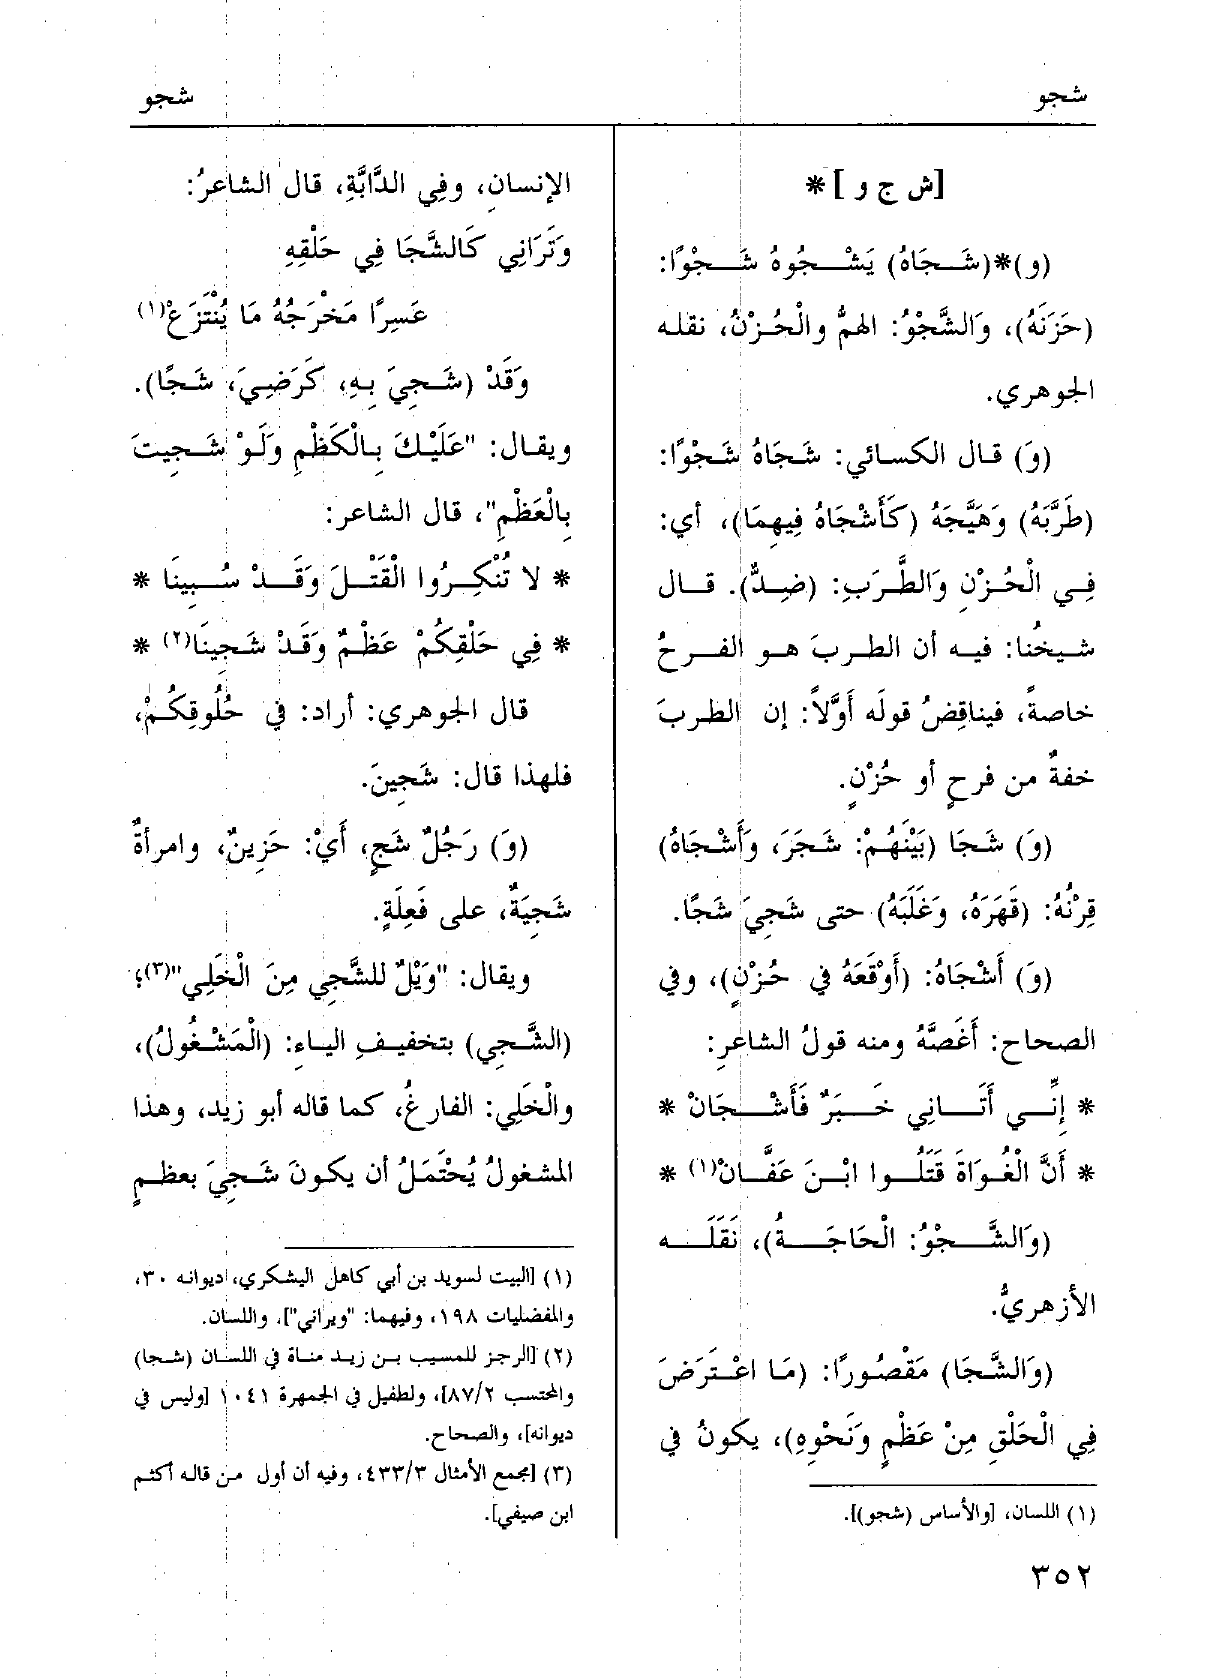 شجو
شجو
[ش ج و] *
(و)*(شَجَاهُ) يَشْجُوهُ شَجْوًا:
(حَزَنَهُ)، وَالشَّجْوُ: الهمُّ والْحُزْنُ، نقله
الجوهري.
(وَ) قال الكسائي: شَجَاهُ شَجْوًا:
(طَرَّبَهُ) وَهَيَّجَهُ (كَأَشْجَاهُ فِيهِمَا)، أي:
فِي الْحُزْنِ وَالطَّرَبِ: (ضِدٌّ). قال
شيخُنا: فيه أن الطربَ هو الفرحُ
خاصةً، فيناقِضُ قولَه أَوَّلاً: إن الطربَ
خفةٌ من فرحٍ أو حُزْنٍ.
(وَ) شَجَا (بَيْنَهُمْ: شَجَرَ، وَأَشْجَاهُ)
قِرْنُهُ: (قَهَرَهُ، وَغَلَبَهُ) حتى شَجِيَ شَجًا.
(وَ) أَشْجَاهُ: (أَوْقَعَهُ في حُزْنٍ)، وفي
الصحاح: أَغَصَّهُ ومنه قولُ الشاعرِ:
* إِنِّي أَتَانِي خَبَرٌ فَأَشْجَانْ *
* أَنَّ الْغُوَاةَ قَتَلُوا ابْنَ عَفَّانْ(١) *
(وَالشَّجْوُ: الْحَاجَةُ)، نَقَلَه
الأزهريُّ.
(وَالشَّجَا) مَقْصُورًا: (مَا اعْتَرَضَ
فِي الْحَلْقِ مِنْ عَظْمٍ وَنَحْوِهِ)، يكونُ في
(١) اللسان، [والأساس (شجو)].
الإنسانِ، وفِي الدَّابَّةِ، قال الشاعرُ:
وَتَرَانِي كَالشَّجَا فِي حَلْقِهِ
عَسِرًا مَخْرَجُهُ مَا يُنْتَزَعْ(١)
وَقَدْ (شَجِيَ بِهِ، كَرَضِيَ، شَجًا).
ويقال: "عَلَيْكَ بِالْكَظْمِ وَلَوْ شَجِيتَ
بِالْعَظْمِ"، قال الشاعر:
* لا تُنْكِرُوا الْقَتْلَ وَقَدْ سُبِينَا *
* فِي حَلْقِكُمْ عَظْمٌ وَقَدْ شَجِينَا(٢) *
قال الجوهري: أراد: في حُلُوقِكُمْ،
فلهذا قال: شَجِينَ.
(وَ) رَجُلٌ شَجٍ، أَيْ: حَزِينٌ، وامرأةٌ
شَجِيَةٌ، على فَعِلَةٍ.
ويقال: "وَيْلٌ للشَّجِي مِنَ الْخَلِي"(٣)؛
(الشَّجِي) بتخفيفِ الياءِ: (الْمَشْغُولُ)،
والْخَلِي: الفارغُ، كما قاله أبو زيد، وهذا
المشغولُ يُحْتَمَلُ أن يكونَ شَجِيَ بعظمٍ
(١) [البيت لسويد بن أبي كاهل اليشكري، ديوانه ٣٠،
والمفضليات ١٩٨، وفيهما: "ويراني"]، واللسان.
(٢) [الرجز للمسيب بن زيد مناة في اللسان (شجا)
والمحتسب ٨٧/٢]، ولطفيل في الجمهرة ١٠٤١ [وليس في
ديوانه]، والصحاح.
(٣) [مجمع الأمثال ٤٣٣/٣، وفيه أن أول من قاله أكثم
ابن صيفي].
٣٥٢